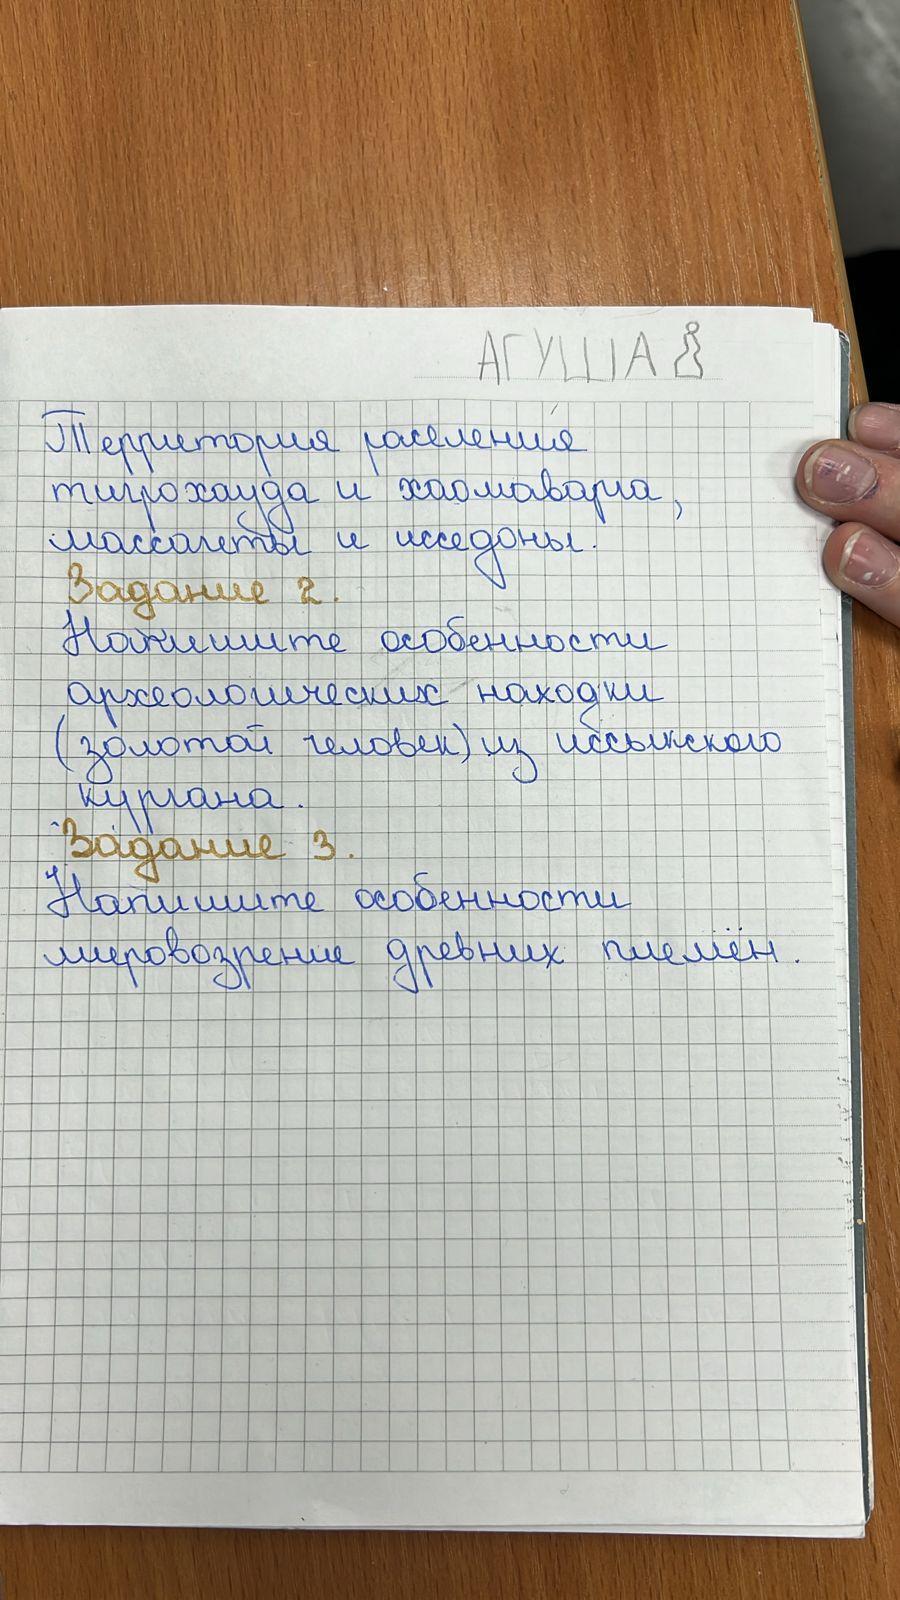 АГУША
Территория раселения
тигрохауда и хаомаварга,
массагеты и исседоны.
Задание 2.
Напишите особенности
археологических находки
(золотой человек) из иссыкского
кургана.
Задание 3.
Напишите особенности
мировозрение древних племён.